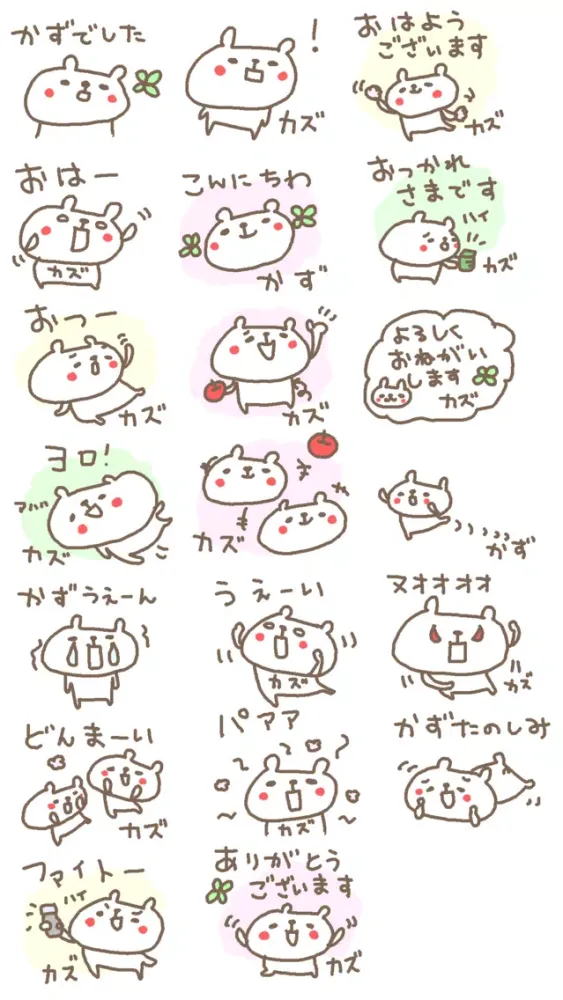 かずでした
!
カズ
おはよう
ございます
カズ
おはー
カズ
こんにちわ
かず
おっかれ
さまです
ハイ
カズ
おっー
カズ
カズ
よろしく
おねがい
します
カズ
ヨロ!
カズ
カズ
かず
かずうぇーん
うぇーい
カズ
ヌオオオオ
カズ
どんまーい
カズ
パァァァ
カズ
かずたのしみ
ファイトー
ハイ
カズ
ありがとう
ございます
カズ